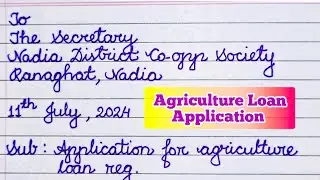 To
The Secretary
Nadia District Co-opp Society
Ranaghat, Nadia
11th July, 2024
Agriculture Loan
Application
Sub: Application for agriculture
loan reg.